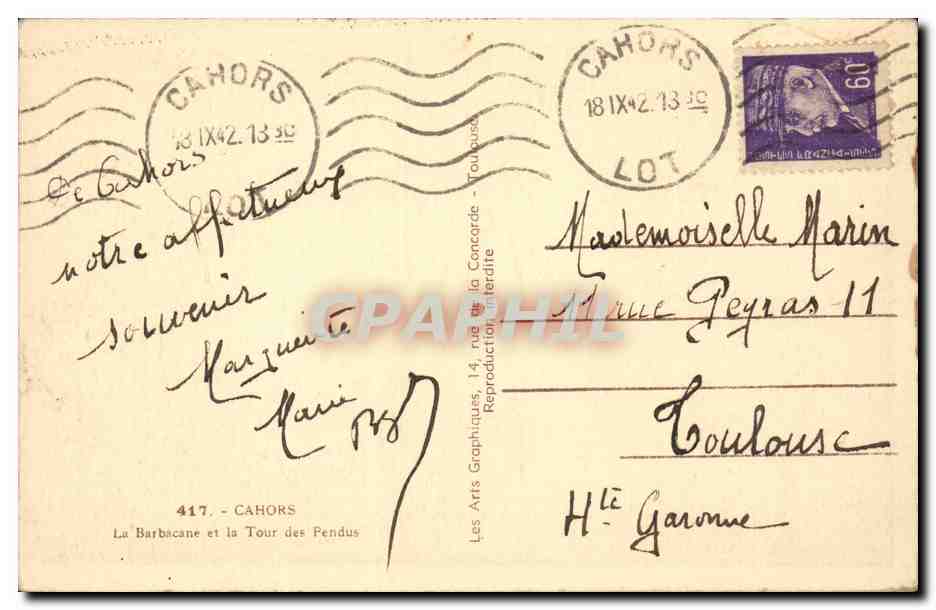 CAHORS
18 IX 42.13 30
LOT
CAHORS
18 IX 42.13 30
LOT
60c
De Cahors
notre affectueux
souvenir
Marguerite
Marie
417. - CAHORS
La Barbacane et la Tour des Pendus
Les Arts Graphiques, 14, rue de la Concorde - Toulouse
Reproduction interdite
Mademoiselle Marin
11 rue Peyras 11
Toulouse
Hte Garonne
CPAPHIL